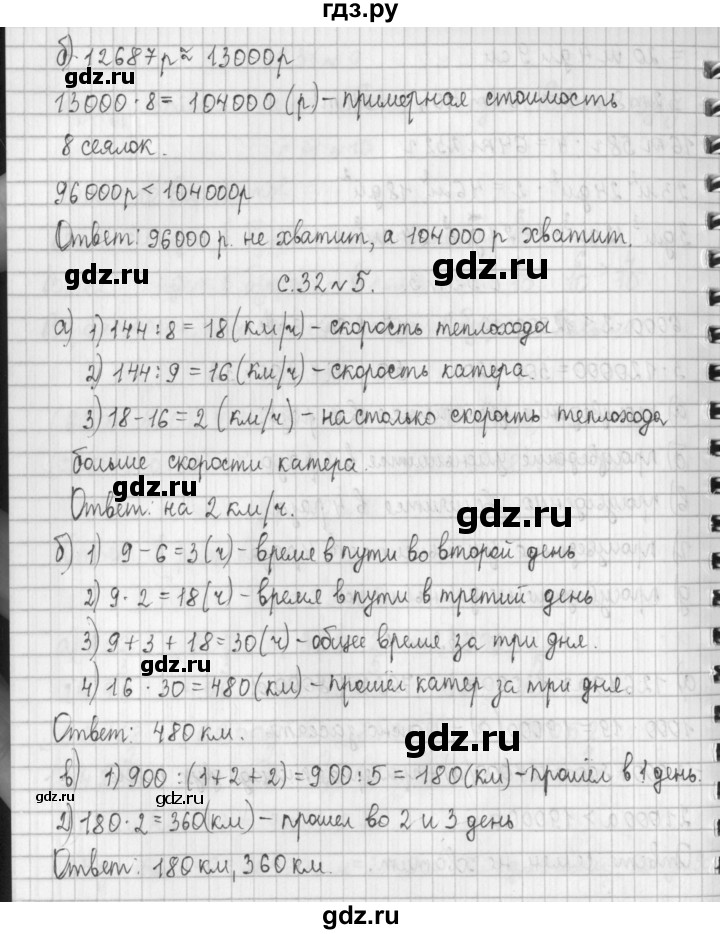 гдз.ру
б) 12687р ≈ 13000р
gdz.ru
gdz.ru
13000 · 8 = 104000 (р) – примерная стоимость
8 сеялок.
96000р < 104000р
Ответ: 96000 р. не хватит, а 104000 р хватит.
gdz.ru
gdz.ru
с.32 № 5.
а) 1) 144 : 8 = 18 (км/ч) – скорость теплохода
2) 144 : 9 = 16 (км/ч) – скорость катера
3) 18 – 16 = 2 (км/ч) – на столько скорость теплохода
больше скорости катера.
gdz.ru
gdz.ru
Ответ: на 2 км/ч.
б) 1) 9 – 6 = 3 (ч) – время в пути во второй день
2) 9 · 2 = 18 (ч) – время в пути в третий день
3) 9 + 3 + 18 = 30 (ч) – общее время за три дня.
gdz.ru
4) 16 · 30 = 480 (км) – прошел катер за три дня.
Ответ: 480 км.
gdz.ru
в) 1) 900 : (1 + 2 + 2) = 900 : 5 = 180 (км) – прошёл в 1 день.
gdz.ru
gdz.ru
2) 180 · 2 = 360 (км) – прошел во 2 и 3 день
Ответ: 180 км, 360 км.
gdz.ru
gdz.ru